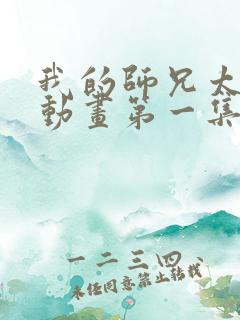 我的師兄太
動畫第一集
一二三四、
未经同意禁止转载